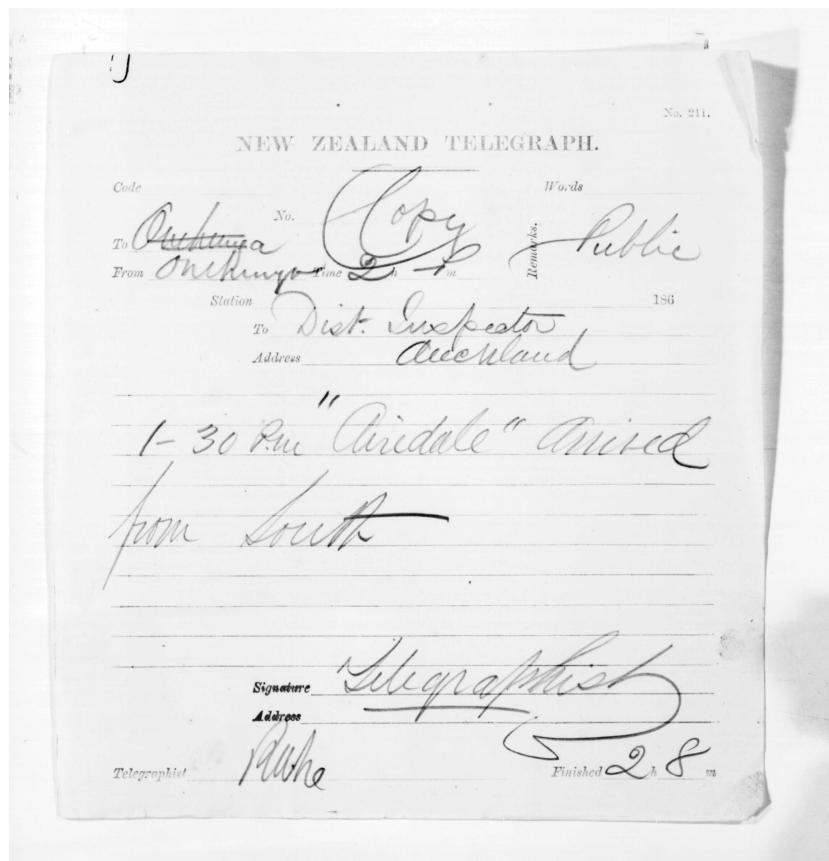 No. 211.
NEW ZEALAND TELEGRAPH.
Code Words
No. Copy
To Onehunga Remarks. Public
From Onehunga Time 2 h m
Station 186
To Dist. Inspector
Address Auckland
1-30 P.m "Airedale" arrived
from South
Signature Telegraphist
Address
Telegraphist
Finished 2 h 8 m